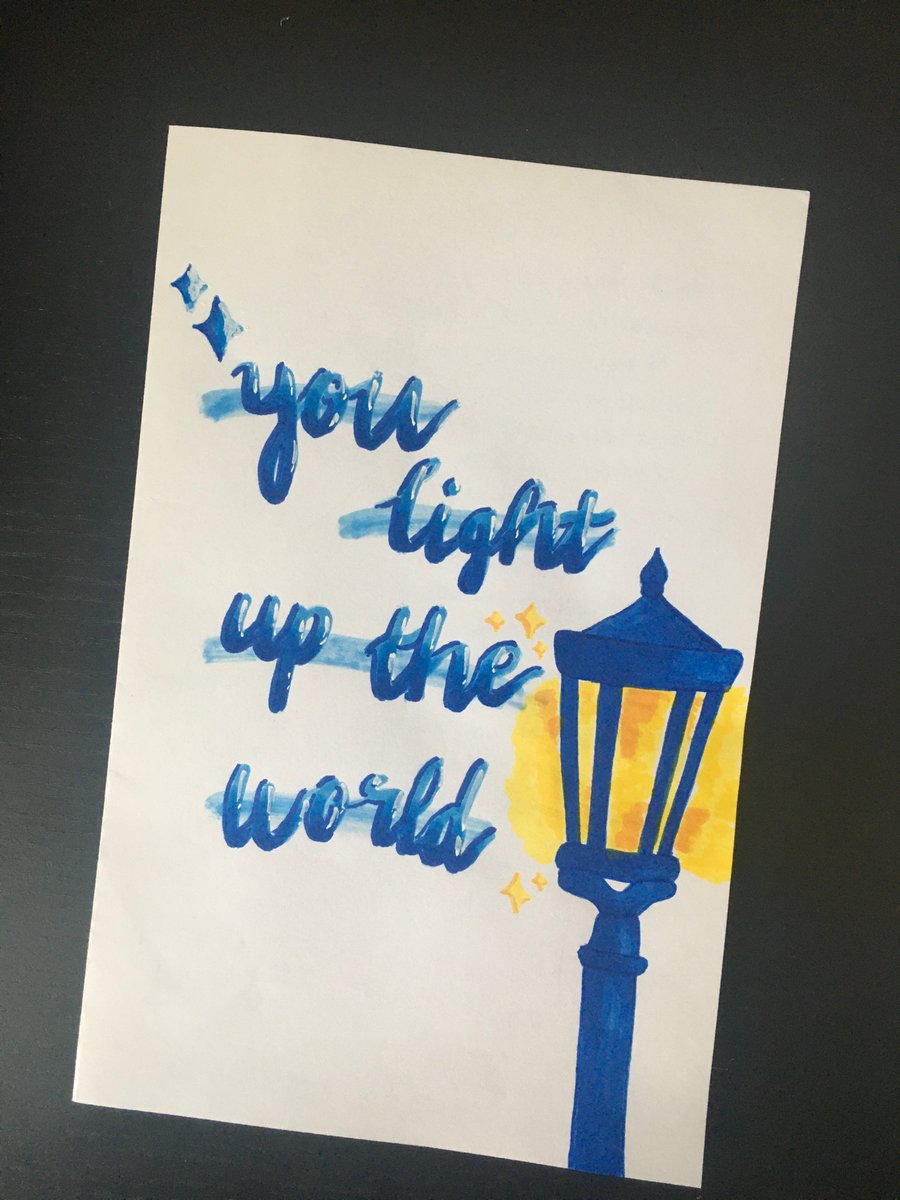 you
light
up the
world